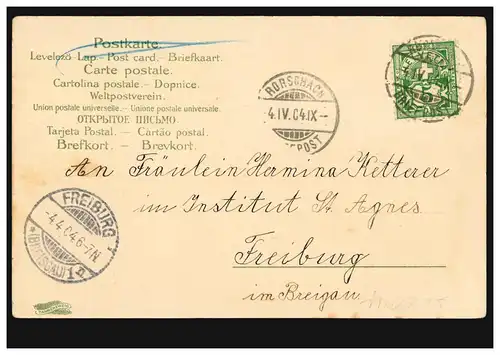 Postkarte.
Levelező Lap. - Post card. - Briefkaart.
Carte postale.
Cartolina postale. - Dopnice.
Weltpostverein.
Union postale universelle. - Unione postale universale.
ОТКРЫТОЕ ПИСЬМО
Tarjeta Postal. - Cartão postal.
Brefkort. - Brevkort.
RORSCHACH
4.IV.04.IX-
An Fräulein Hermina Ketterer
im Institut St. Agnes
Freiburg
im Breigau.
FREIBURG
-4.4.04.6-7N
*(BREISGAU)1a